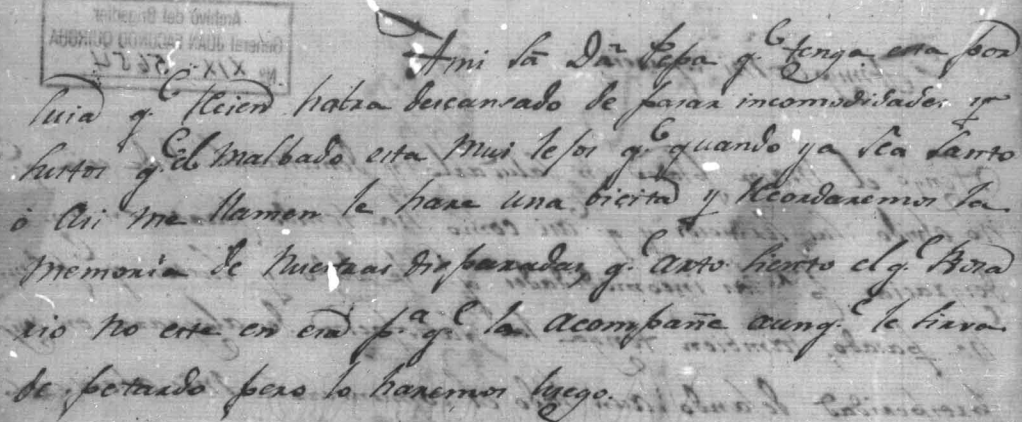 Archivo del Brigadier
General JUAN FACUNDO QUIROGA
Nº XIX 5654
A mi Sã Dã Pepa q.e tenga esta por
suia q.e Recien habra descansado de pasar incomodidades y
sustos q.e el malbado esta mui lejos q.e quando ya sea Santo
ó Asi me llamen le hare una bicita y Recordaremos la
memoria de nuestras disparadas q.e arto siento el q.e Rosa
rio no este en esa p.a q.e la acompañe aunq.e le sirva
de petardo pero lo haremos luego.